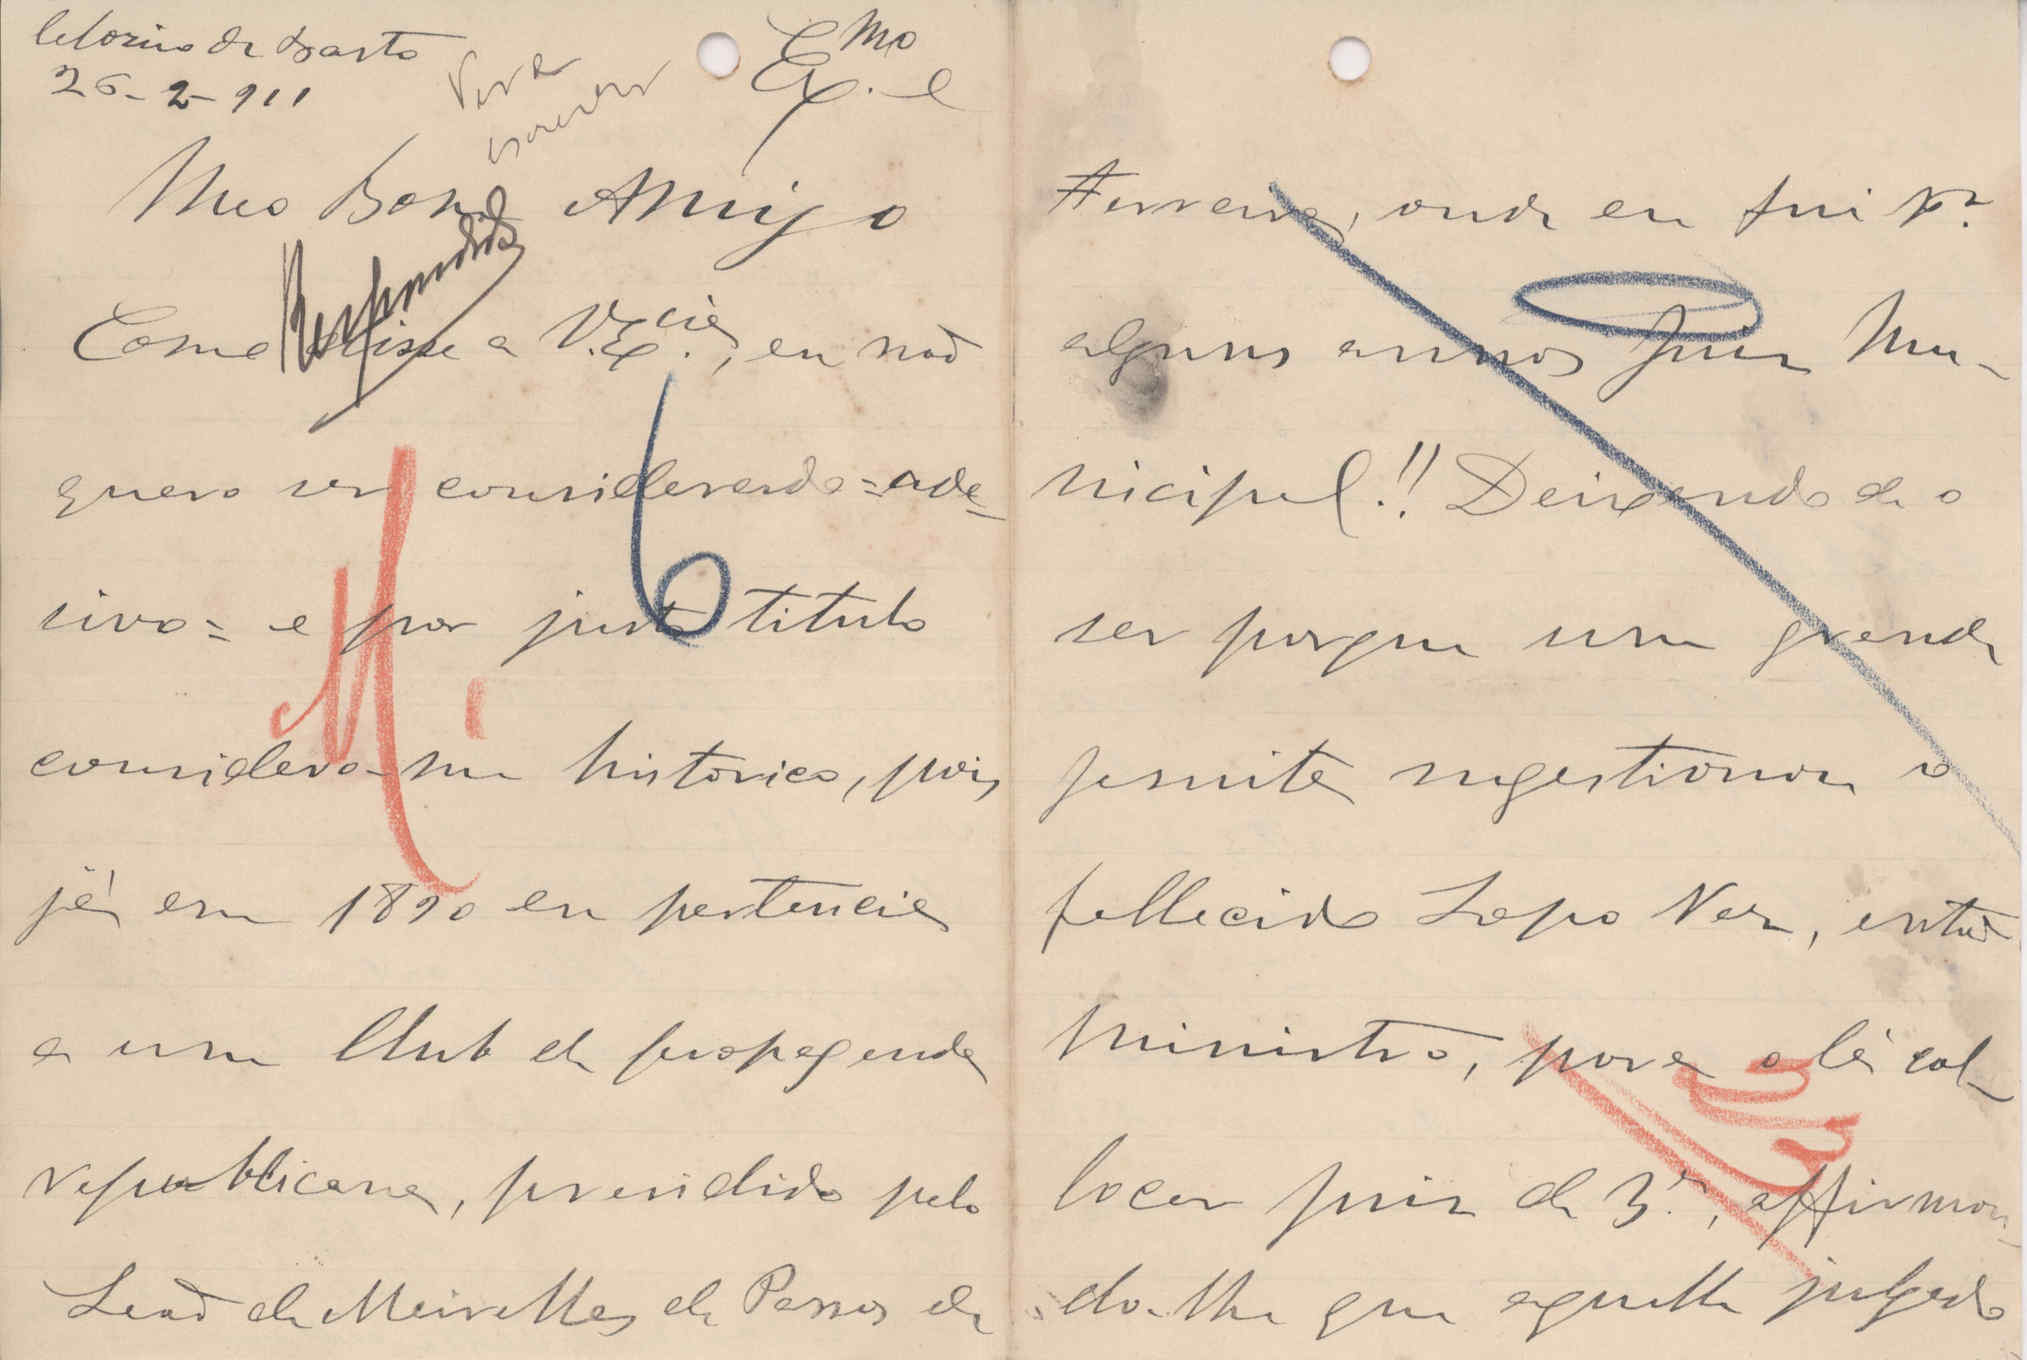 Celorico de Basto
26-2-911
Para
escrever
Exmo
Meo Bom Amigo
Respondida
Como disse a V. Excia, eu não
quero ser considerado = ade-
sivo = e por justo titulo
considero-me historico, pois
já em 1890 eu pertencia
a um Club de propaganda
republicana, presidido pelo
Leão de Meirelles de Paços de
6
Ferreira, onde eu fui pr.
alguns annos Juiz Mu-
nicipal!! Deixando de o
ser porque um grande
jesuita sugestionou o
fallecido Lopo Vaz, então
Ministro, para o lá col-
locar juiz de 3ª, affirman-
do-lhe que aquelle julgado